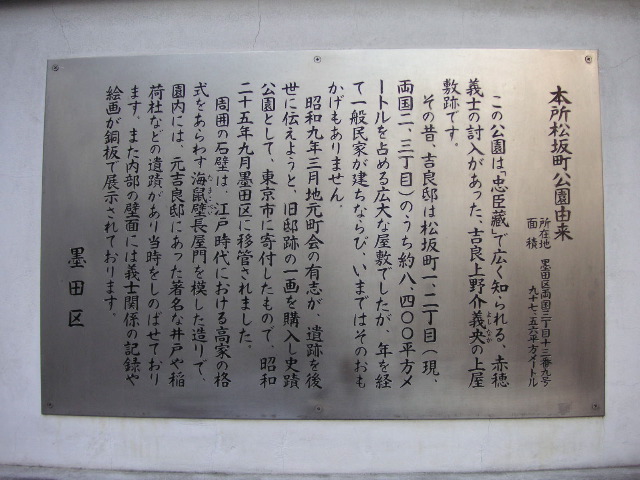 本所松坂町公園由来
所在地　墨田区両国三丁目十三番九号
面積　九十七、五六平方メートル
この公園は「忠臣蔵」で広く知られる、赤穂
義士の討入があった、吉良上野介義央の上屋
敷跡です。
その昔、吉良邸は松坂町一、二丁目（現、
両国二、三丁目）のうち約八、四〇〇平方メ
ートルを占める広大な屋敷でしたが、年を経
て一般民家が建ちならび、いまではそのおも
かげもありません。
昭和九年三月地元町会の有志が、遺跡を後
世に伝えようと、旧邸跡の一画を購入し史蹟
公園として、東京市に寄付したもので、昭和
二十五年九月墨田区に移管されました。
周囲の石壁は、江戸時代における高家の格
式をあらわす海鼠壁長屋門を模した造りで、
園内には、元吉良邸にあった著名な井戸や稲
荷社などの遺蹟があり当時をしのばせており
ます、また内部の壁面には義士関係の記録や
絵画が銅板で展示されております。
墨田区